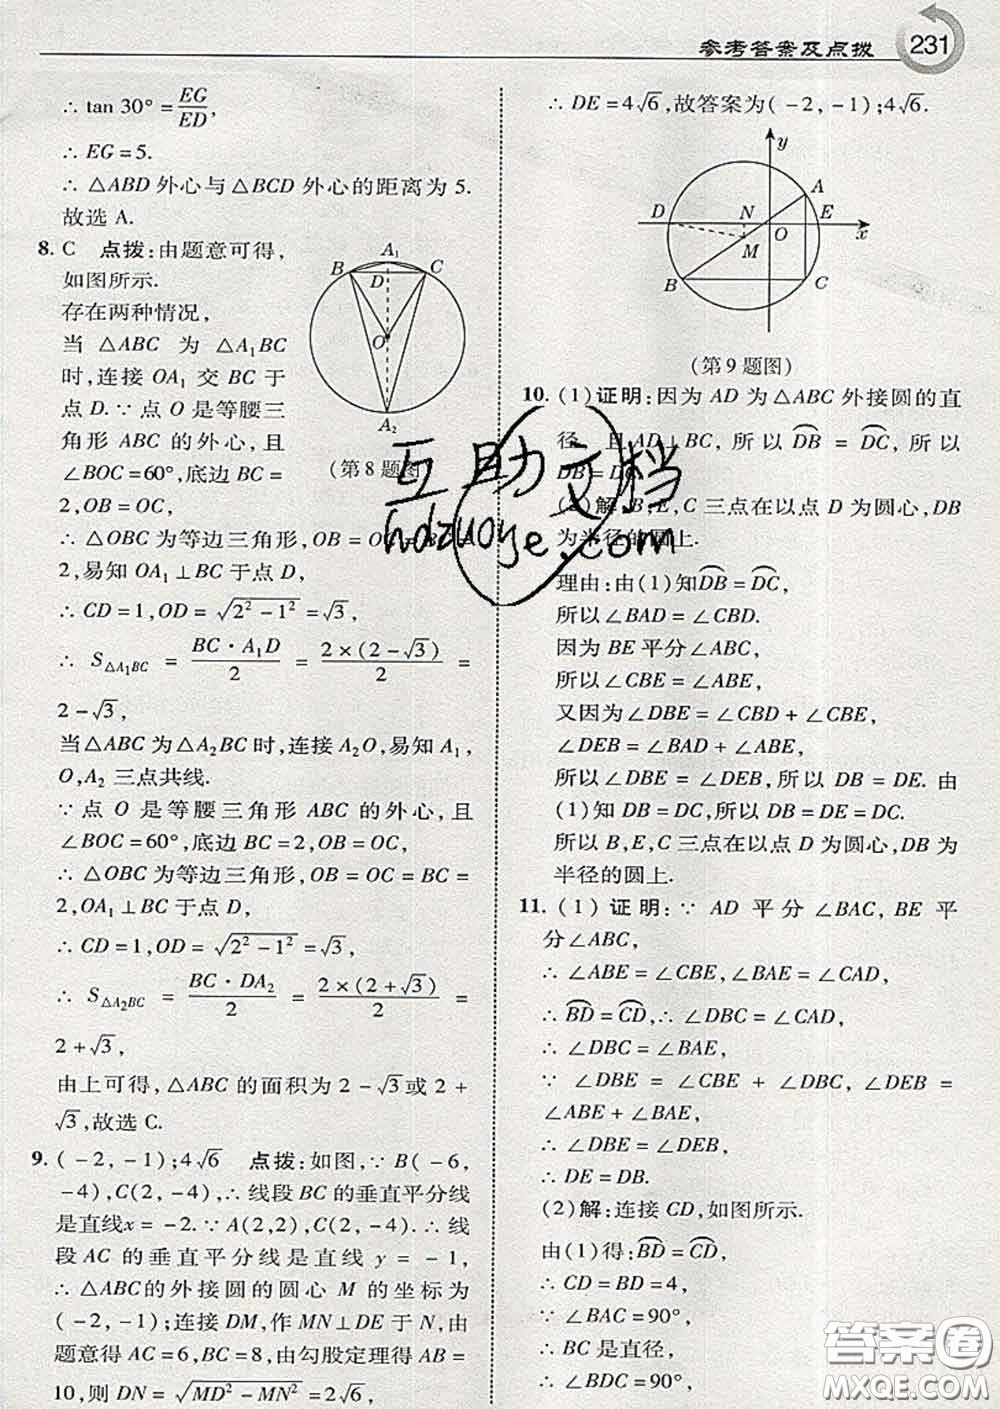 参考答案及点拨 231
∴ tan 30° = EG/ED,
∴ EG = 5.
∴ △ABD 外心与△BCD 外心的距离为 5.
故选 A.
8. C 点拨:由题意可得,
如图所示.
存在两种情况,
当 △ABC 为 △A₁BC
时,连接 OA₁ 交 BC 于
点 D. ∵ 点 O 是等腰三
角形 ABC 的外心,且
∠BOC = 60°,底边 BC =
2, OB = OC,
A₁
B
D
C
O
A₂
(第 8 题图)
∴ △OBC 为等边三角形, OB = OC = BC =
2,易知 OA₁ ⊥ BC 于点 D,
∴ CD = 1, OD = √(2² − 1²) = √3,
∴ S△A₁BC = BC · A₁D/2 = 2 × (2 − √3)/2 =
2 − √3,
当△ABC 为△A₂BC 时,连接 A₂O,易知 A₁,
O, A₂ 三点共线.
∵ 点 O 是等腰三角形 ABC 的外心,且
∠BOC = 60°,底边 BC = 2, OB = OC,
∴ △OBC 为等边三角形, OB = OC = BC =
2, OA₁ ⊥ BC 于点 D,
∴ CD = 1, OD = √(2² − 1²) = √3,
∴ S△A₂BC = BC · DA₂/2 = 2 × (2 + √3)/2 =
2 + √3,
由上可得,△ABC 的面积为 2 − √3 或 2 +
√3,故选 C.
9. (−2, −1); 4√6 点拨:如图, ∵ B(−6,
−4), C(2, −4), ∴ 线段 BC 的垂直平分线
是直线x = −2. ∵ A(2,2), C(2, −4). ∴ 线
段 AC 的垂直平分线是直线 y = −1,
∴ △ABC的外接圆的圆心 M 的坐标为
(−2, −1);连接 DM,作 MN ⊥ DE 于 N,由
题意得 AC = 6, BC = 8,由勾股定理得 AB =
10,则 DN = √(MD² − MN²) = 2√6,
∴ DE = 4√6,故答案为(−2, −1); 4√6.
y
A
D
N
E
O
x
M
B
C
(第 9 题图)
10. (1)证明:因为 AD 为 △ABC 外接圆的直
径,且 AD ⊥ BC,所以 DB⌒ = DC⌒,所以
DB = DC.
(2)解:B, E, C 三点在以点 D 为圆心, DB
为半径的圆上.
理由:由(1)知 DB⌒ = DC⌒,
所以∠BAD = ∠CBD.
因为 BE 平分∠ABC,
所以∠CBE = ∠ABE,
又因为∠DBE = ∠CBD + ∠CBE,
∠DEB = ∠BAD + ∠ABE,
所以∠DBE = ∠DEB,所以 DB = DE. 由
(1)知 DB = DC,所以 DB = DE = DC.
所以 B, E, C 三点在以点 D 为圆心, DB 为
半径的圆上.
11. (1) 证明: ∵ AD 平分∠BAC, BE 平
分∠ABC,
∴ ∠ABE = ∠CBE, ∠BAE = ∠CAD,
∴ BD⌒ = CD⌒, ∴ ∠DBC = ∠CAD,
∴ ∠DBC = ∠BAE,
∵ ∠DBE = ∠CBE + ∠DBC, ∠DEB =
∠ABE + ∠BAE,
∴ ∠DBE = ∠DEB,
∴ DE = DB.
(2)解:连接 CD,如图所示.
由(1)得: BD⌒ = CD⌒,
∴ CD = BD = 4,
∵ ∠BAC = 90°,
∴ BC 是直径,
∴ ∠BDC = 90°,
互助文档
hdzuoye.com
答案圈
MXQE.COM